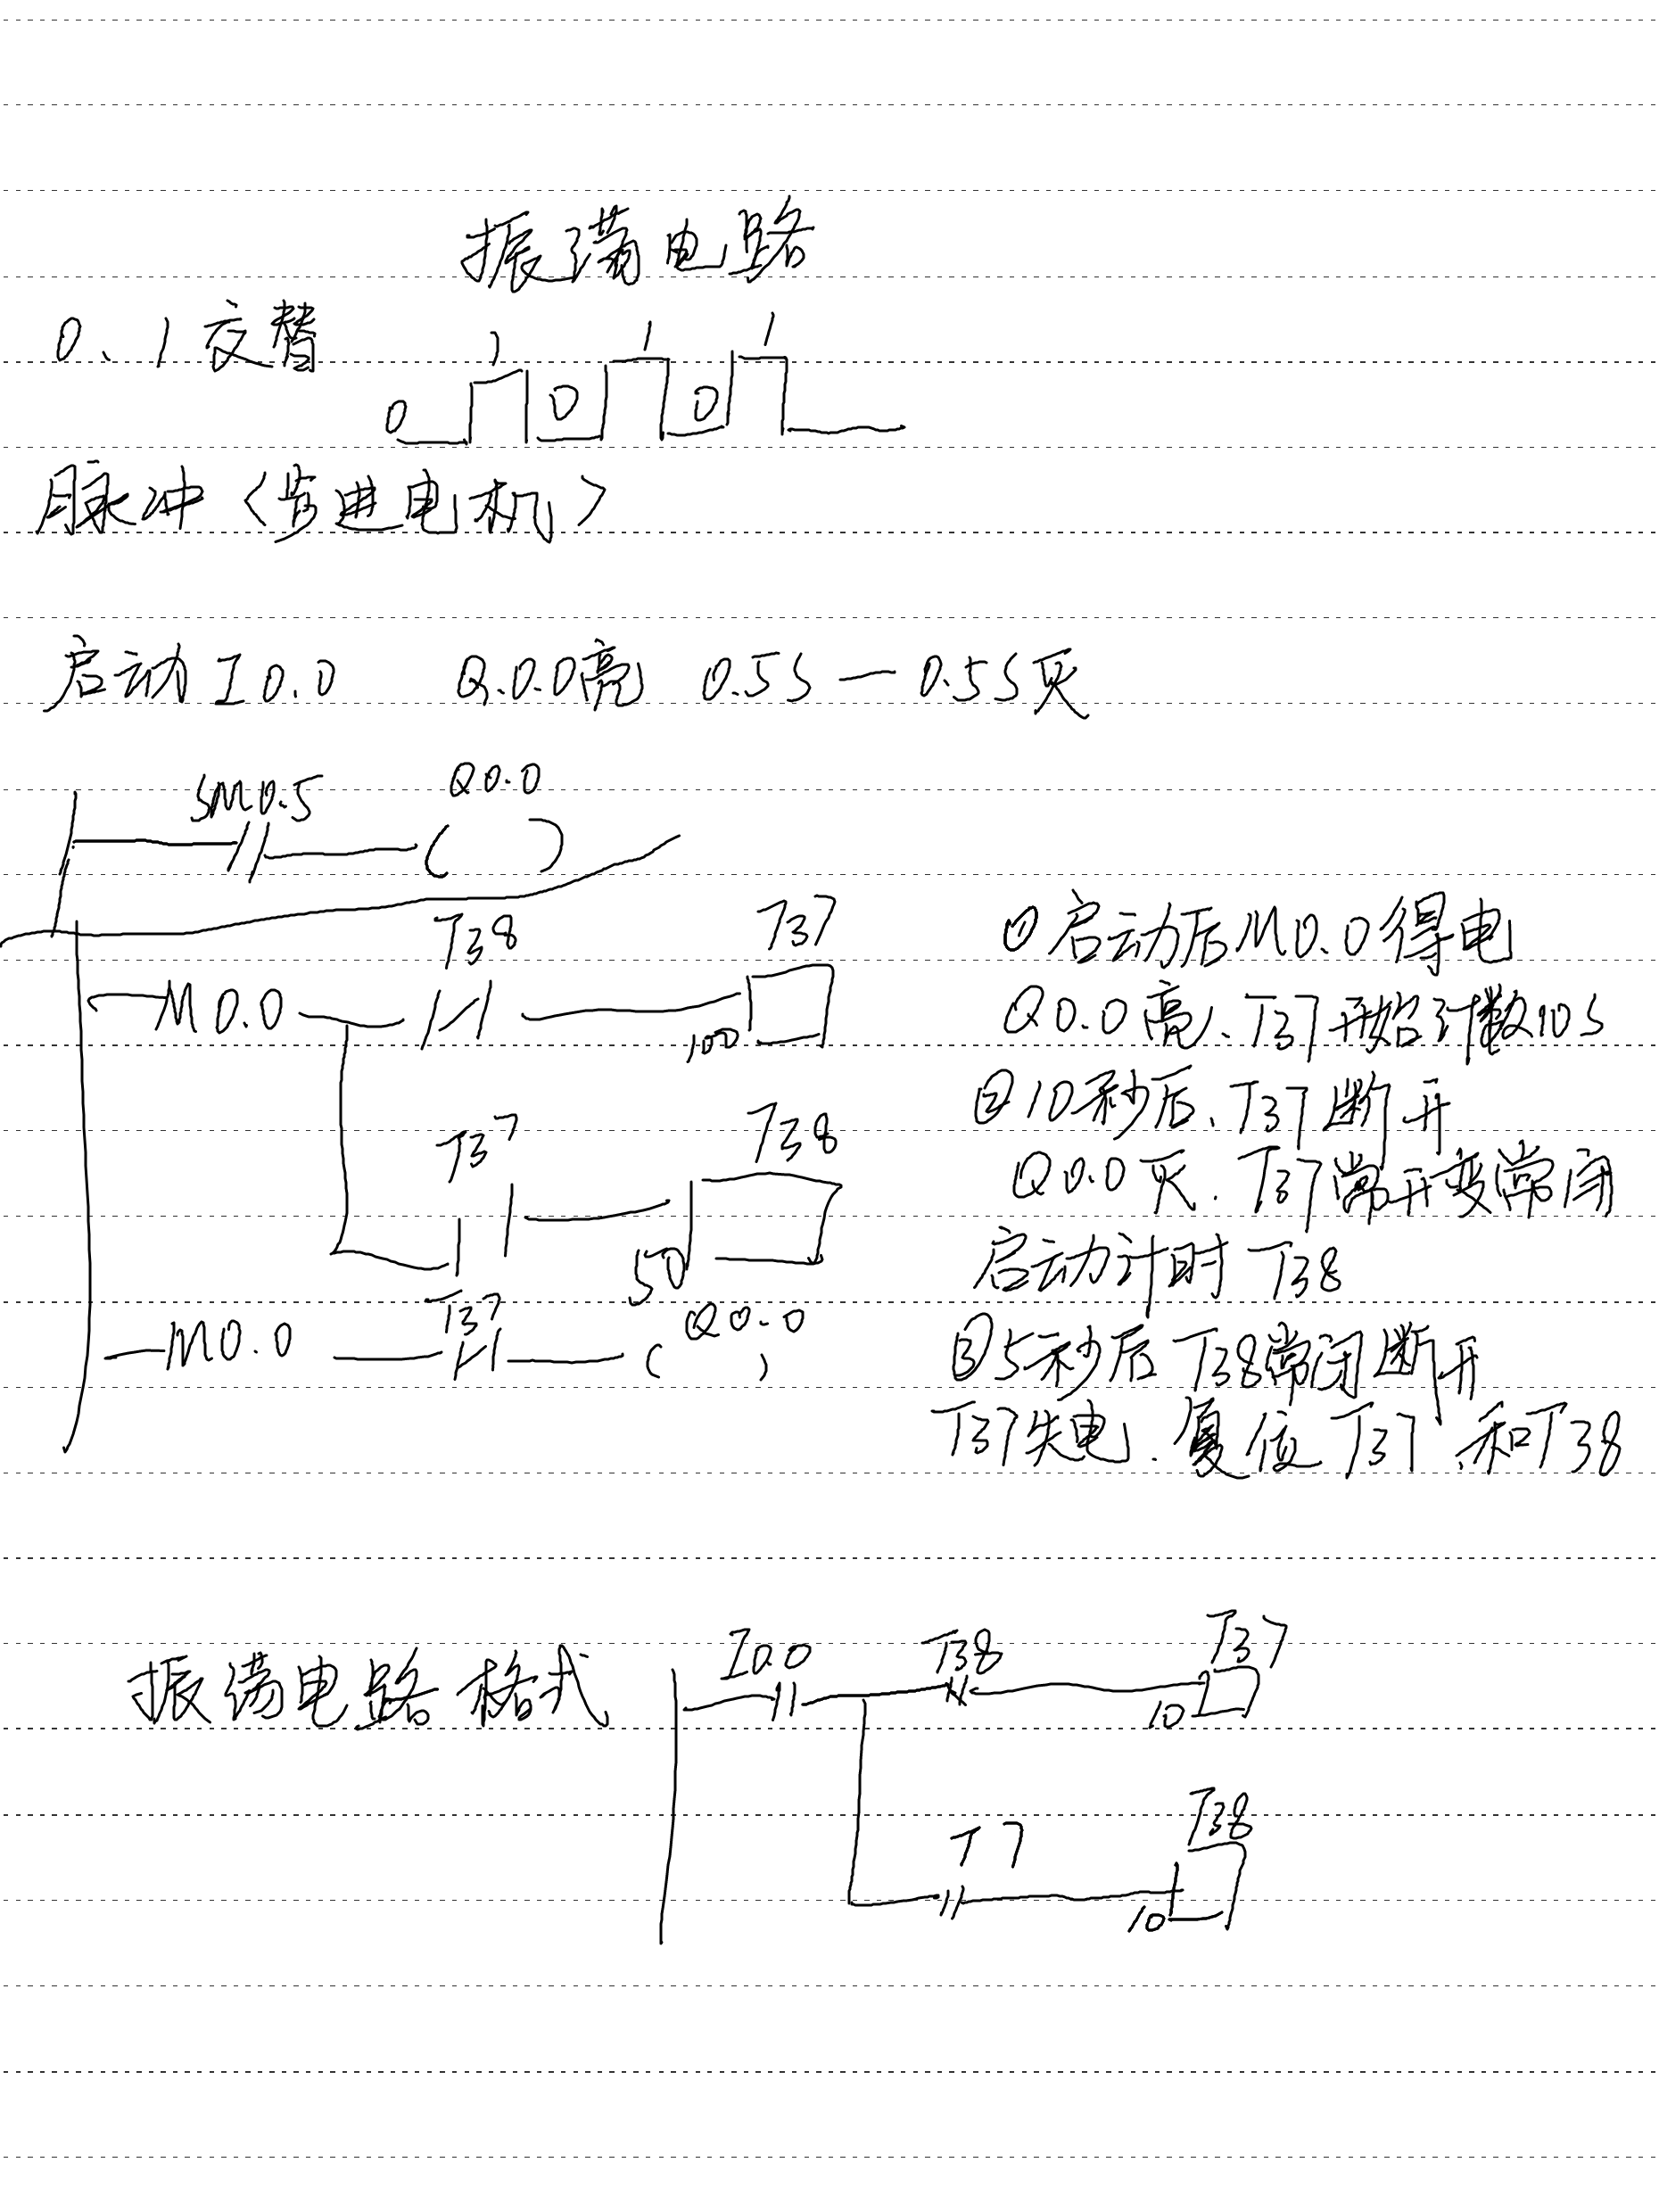 振荡电路
0、1交替
1 1 1
0 0 0
脉冲〈步进电机〉
启动 I0.0 Q.0.0亮 0.5S — 0.5S灭
SM0.5 Q0.0
T38 T37
M0.0 100
T37 T38
50
T37 Q0.0
M0.0
①启动后M0.0得电
Q0.0亮、T37开始计数10S
②10秒后、T37断开
Q0.0灭.T37常开变常闭
启动计时T38
③5秒后T38常闭断开
T37失电.复位T37和T38
振荡电路格式
I0.0 T38 T37
10
T7 T38
10